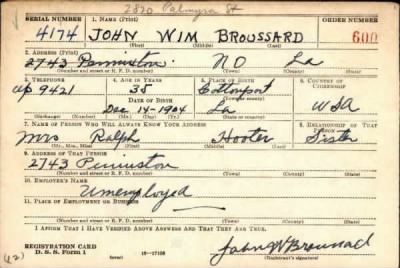 2820 Palmyra St
SERIAL NUMBER 1. NAME (Print) ORDER NUMBER
4174 JOHN WIM BROUSSARD 600
(First) (Middle) (Last)
2. ADDRESS (Print)
2743 Penniston NO La
(Number and street or R. F. D. number) (Town) (County) (State)
3. TELEPHONE 4. AGE IN YEARS 5. PLACE OF BIRTH 6. COUNTRY OF CITIZENSHIP
Up 9421 35 Cottonport
DATE OF BIRTH
Dec 14-1904 La USA
(Exchange) (Number) (Mo.) (Day) (Yr.) (State or country)
7. NAME OF PERSON WHO WILL ALWAYS KNOW YOUR ADDRESS 8. RELATIONSHIP OF THAT PERSON
Mrs Ralph Hooter Sister
(Mr., Mrs., Miss) (First) (Middle) (Last)
9. ADDRESS OF THAT PERSON
2743 Penniston
(Number and street or R. F. D. number) (Town) (County) (State)
10. EMPLOYER'S NAME
Unemployed
11. PLACE OF EMPLOYMENT OR BUSINESS
(Number and street or R. F. D. number) (Town) (County) (State)
I AFFIRM THAT I HAVE VERIFIED ABOVE ANSWERS AND THAT THEY ARE TRUE.
REGISTRATION CARD
D. S. S. Form 1
(over) 16-17105
John W Broussard
(Registrant's signature)
(12)